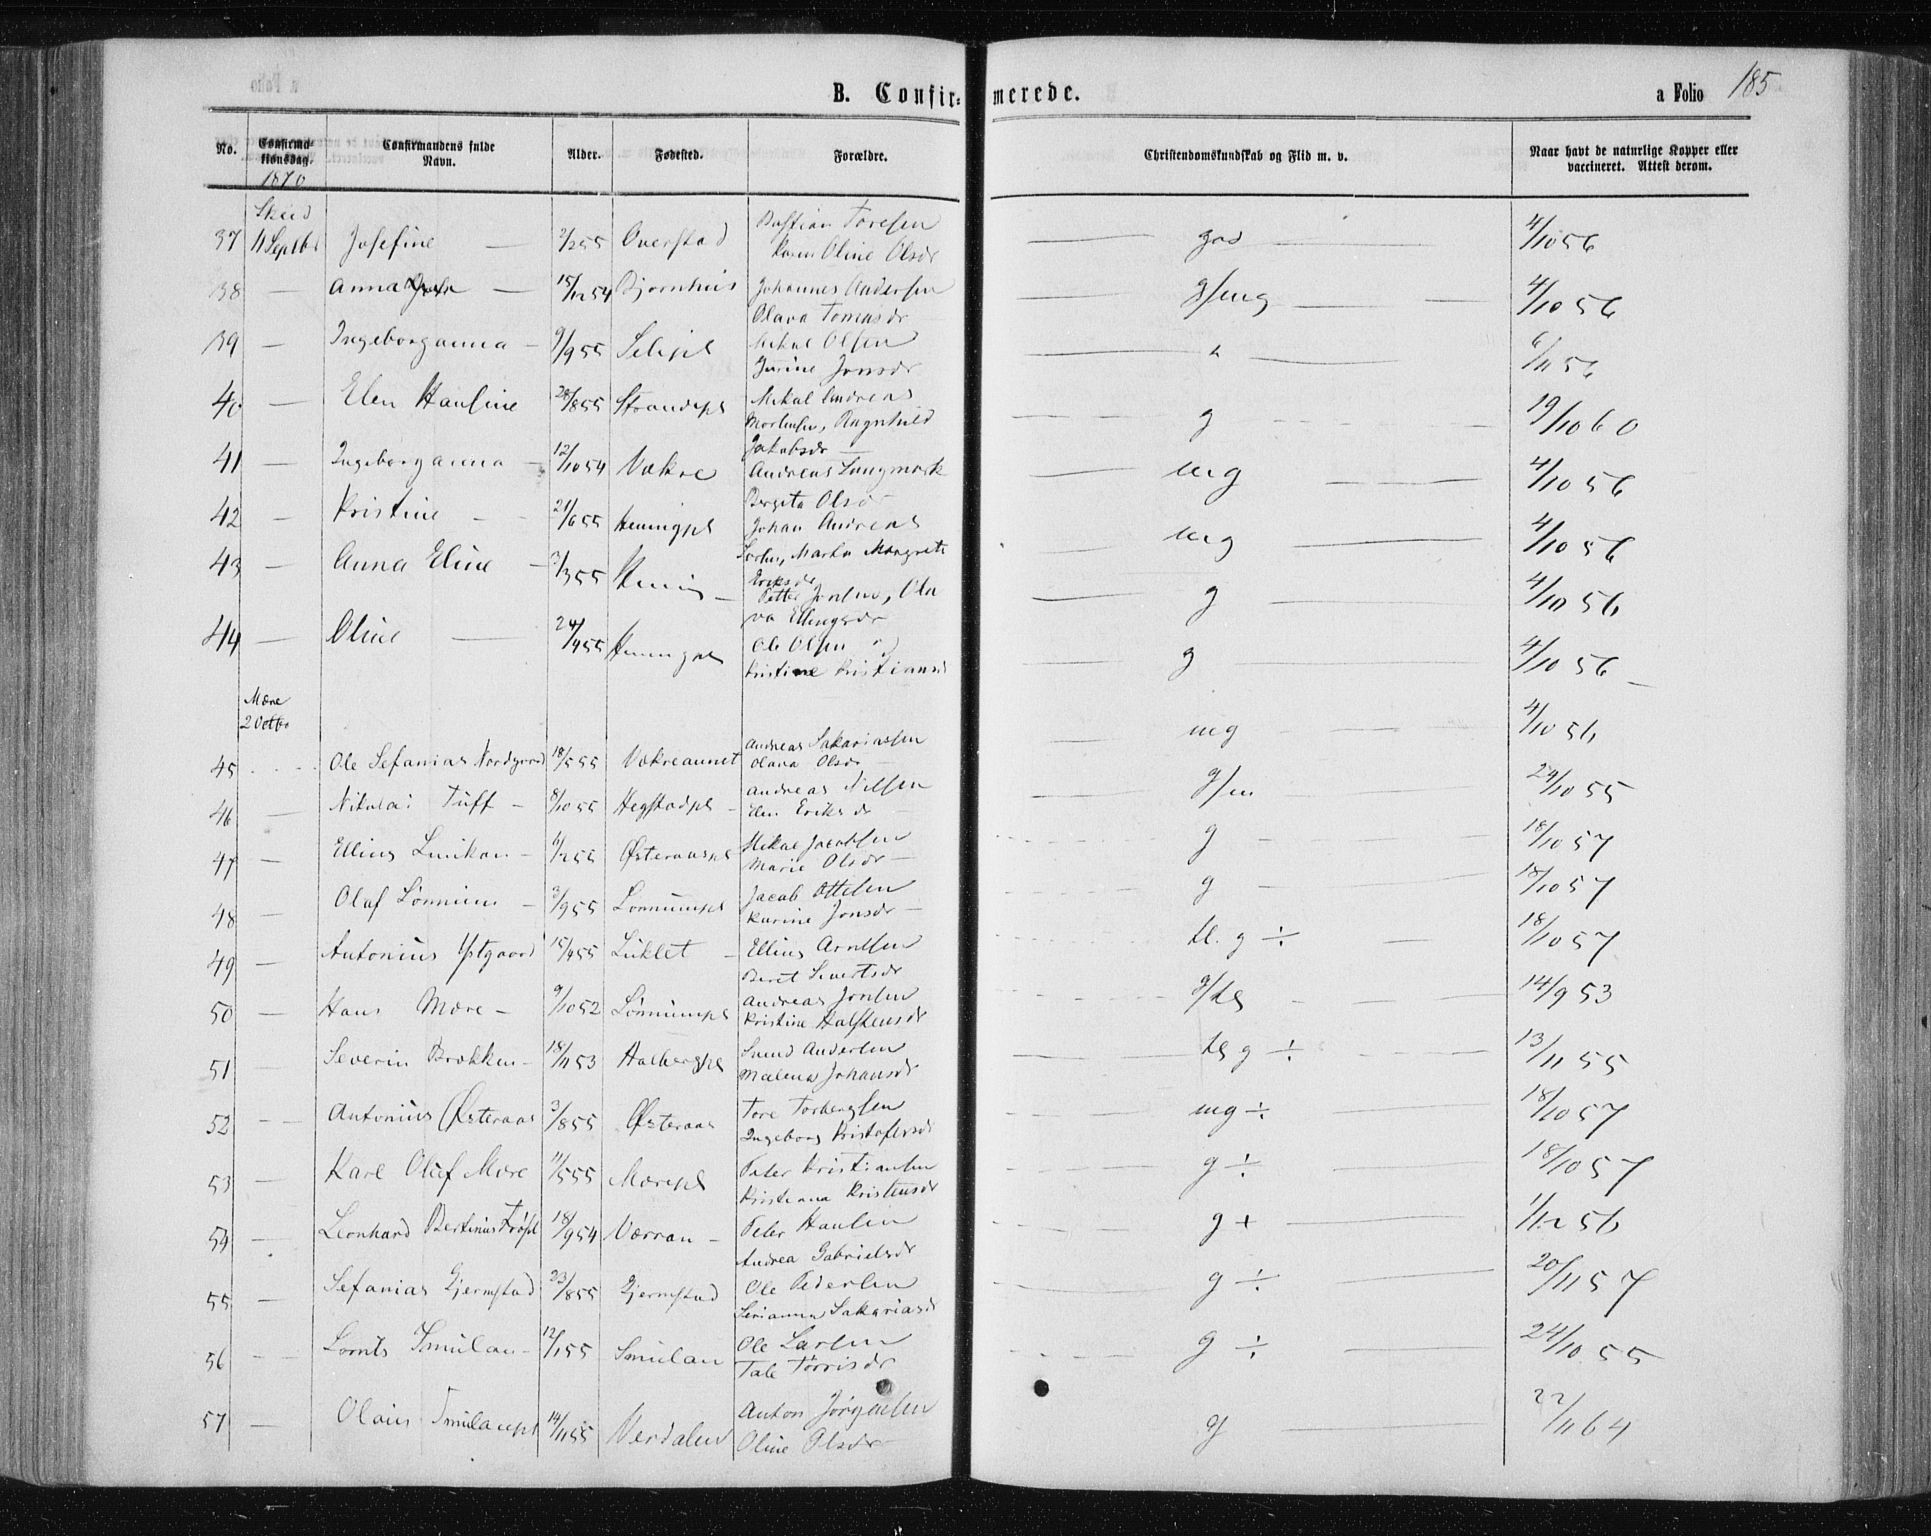 B. Confirmerede.
a Folio 185
No. Confirmationsdag. Confirmandens fulde Navn. Alder. Fødested. Forældre. Christendomskundskab og Flid m. v. Naar havt de naturlige Kopper eller vaccineret. Attest derom.
1870
37 11 Septbr Josefine — 2/2 55 Overstad Bastian Toresen Karen Oline Olsdr god 4/10 56
38 — Anna — 15/12 54 Bjørnhus Johannes Andersen Olava Tomasdr g/mg 4/10 56
39 — Ingeborganna — 9/9 55 Mikal Olsen Jonsdr 6/11 56
40 — Elen Hansine 28/8 55 Strandspl Mikal Andreas Mortensen, Ragnhild Jakobsdr g 19/10 60
41 — Ingeborganna — 12/10 54 Vækre Andreas Lungmark Birgita Olsdr mg 4/10 56
42 — Kristine — 21/6 55 Heningpl Johan Andreas Marta Margrete Eriksdr mg 4/10 56
43 — Anna Eline — 3/3 55 Hening — Petter Jensen, Olava Ellingsdr g 4/10 56
44 — Oline — 24/4 55 Heningpl Ole Olsen og Kristine Kristiansdr g 4/10 56
Mære
2 Octbr
45 Ole Sefanias Nordgaard 18/5 55 Vækreaunet Andreas Sakariassen Olava Olsdr mg 4/10 56
46 — Nikolai Tuff — 8/10 55 Hegstadpl — Andreas Nilsen Eriksdr g/m 29/10 55
47 — Ellius — 6/2 55 Østeraaspl Mikal Jacobsen Marie Olsdr — g 18/10 57
48 — Olaf Lønnum — 3/9 55 Lønnumpl Jacob Ottesen Karine Jonsdr — g 18/10 57
49 — Antonius Ystgaard 15/4 55 — Ellius Arntsen Beret Sivertsdr tl. g ÷ 18/10 57
50 — Hans Mære — 9/10 52 Lønnumpl Andreas Jonsen Kristine Halstensdr g/tlg 14/9 53
51 — Severin Brekken — 18/11 53 Aalbergpl Svend Andersen Malena Johansdr tlg ÷ 13/11 55
52 — Antonius Østeraas 3/8 55 Østeraas Tore Torbergsen Ingeborg Kristofersdr mg ÷ 18/10 57
53 — Karl Oluf Mære 11/5 55 Mærepl Peter Kristiansen Kristiana Kristensdr g ÷ 18/10 57
54 — Leonhard Bertinus 18/9 54 Værran — Peter Hansen Andrea Gabrielsdr g + 1/12 56
55 — Sefanias Gjermstad 23/8 55 Gjermstad Ole Pedersen Serianna Sakariasdr g ÷ 20/11 57
56 — Lornts Smulan — 12/1 55 Smulan Ole Larsen Tale Tørrisdr g ÷ 24/10 55
57 — Olaus Smulanpl 14/11 55 Verdalen Anton Jørgensen Oline Olsdr g 22/11 64